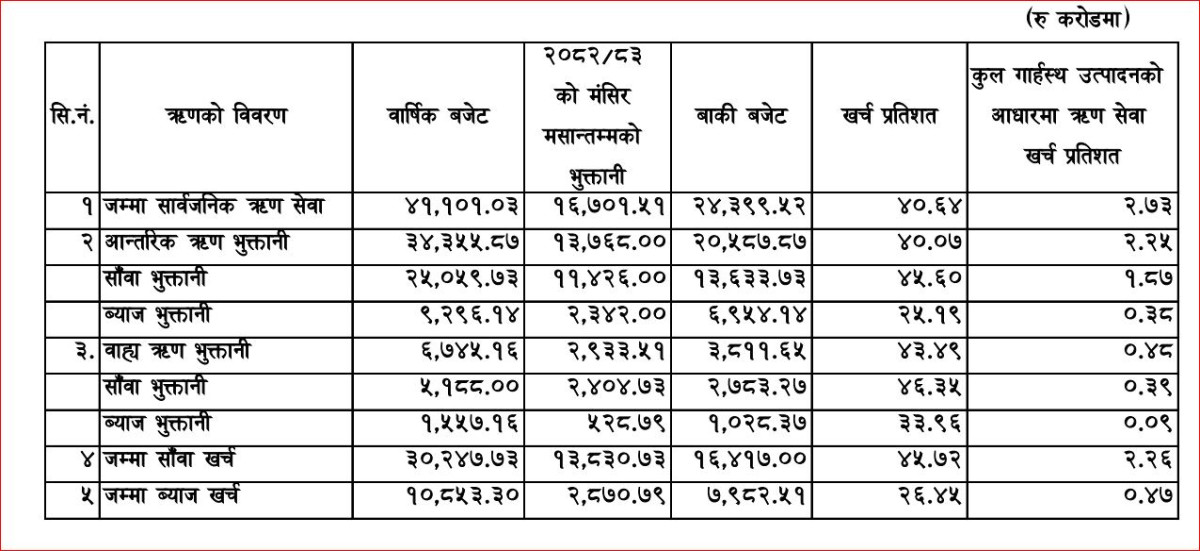 (रु करोडमा)
सि.नं. ऋणको विवरण वार्षिक बजेट २०८२/८३ को मंसिर मसान्तम्मको भुक्तानी बाकी बजेट खर्च प्रतिशत कुल गार्हस्थ उत्पादनको आधारमा ऋण सेवा खर्च प्रतिशत
१ जम्मा सार्वजनिक ऋण सेवा ४१,१०१.०३ १६,७०१.५१ २४,३९९.५२ ४०.६४ २.७३
२ आन्तरिक ऋण भुक्तानी ३४,३५५.८७ १३,७६८.०० २०,५८७.८७ ४०.०७ २.२५
साँवा भुक्तानी २५,०५९.७३ ११,४२६.०० १३,६३३.७३ ४५.६० १.८७
ब्याज भुक्तानी ९,२९६.१४ २,३४२.०० ६,९५४.१४ २५.१९ ०.३८
३. वाह्य ऋण भुक्तानी ६,७४५.१६ २,९३३.५१ ३,८११.६५ ४३.४९ ०.४८
साँवा भुक्तानी ५,१८८.०० २,४०४.७३ २,७८३.२७ ४६.३५ ०.३९
ब्याज भुक्तानी १,५५७.१६ ५२८.७९ १,०२८.३७ ३३.९६ ०.०९
४ जम्मा साँवा खर्च ३०,२४७.७३ १३,८३०.७३ १६,४१७.०० ४५.७२ २.२६
५ जम्मा ब्याज खर्च १०,८५३.३० २,८७०.७९ ७,९८२.५१ २६.४५ ०.४७